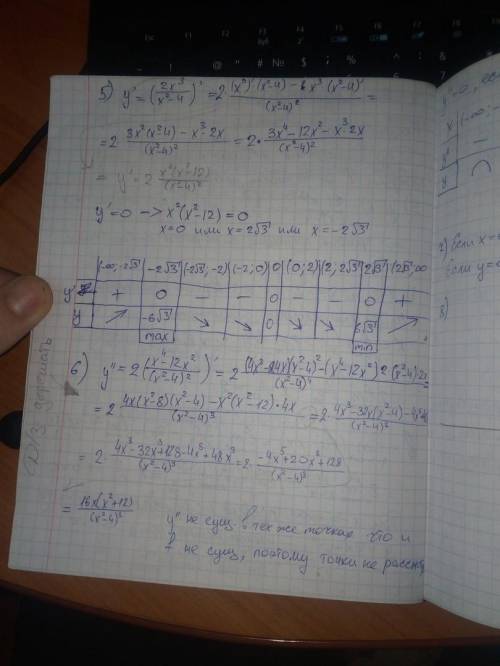 5) y' = (2x³/(x²-4))' = 2 (x³)'(x²-4) - x³(x²-4)'/(x²-4)² =
= 2· 3x²(x²-4) - x³·2x/(x²-4)² = 2· 3x⁴-12x²-x³·2x/(x²-4)²
= y' = 2 x²(x²-12)/(x²-4)²
y'=0 -> x²(x²-12) = 0
x=0 или x=2√3 или x=-2√3
(-∞; -2√3) | -2√3 | (-2√3; -2) | (-2; 0) | 0 | (0; 2) | (2; 2√3) | 2√3 | (2√3; ∞
y' | + | 0 | - | - | 0 | - | - | 0 | +
y | ↗ | -6√3 max | ↘ | ↘ | 0 | ↘ | ↘ | 6√3 min | ↗
6) y'' = 2(x⁴-12x²/(x²-4)²)' = 2 (4x³-24x)(x²-4)²-(x⁴-12x²)2(x²-4)2x/(x²-4)⁴
= 2 4x(x²-8)(x²-4) - x²(x²-12)·4x/(x²-4)³ = 2 4x³-32x(x²-4)-4x
= 2· 4x³-32x³+128-4x⁵+48x³/(x²-4)³ = 2· -4x⁵+20x³+128/(x²-4)³
= 16x(x²+12)/(x²-4)³
y'' не сущ. в тех же точках что и
f не сущ, поэтому точки не рассм
Д/З дорешать
y'=0, есл
x | (-∞;
y'' | -
y | ⌒
7) Если x=
Если y=
8)